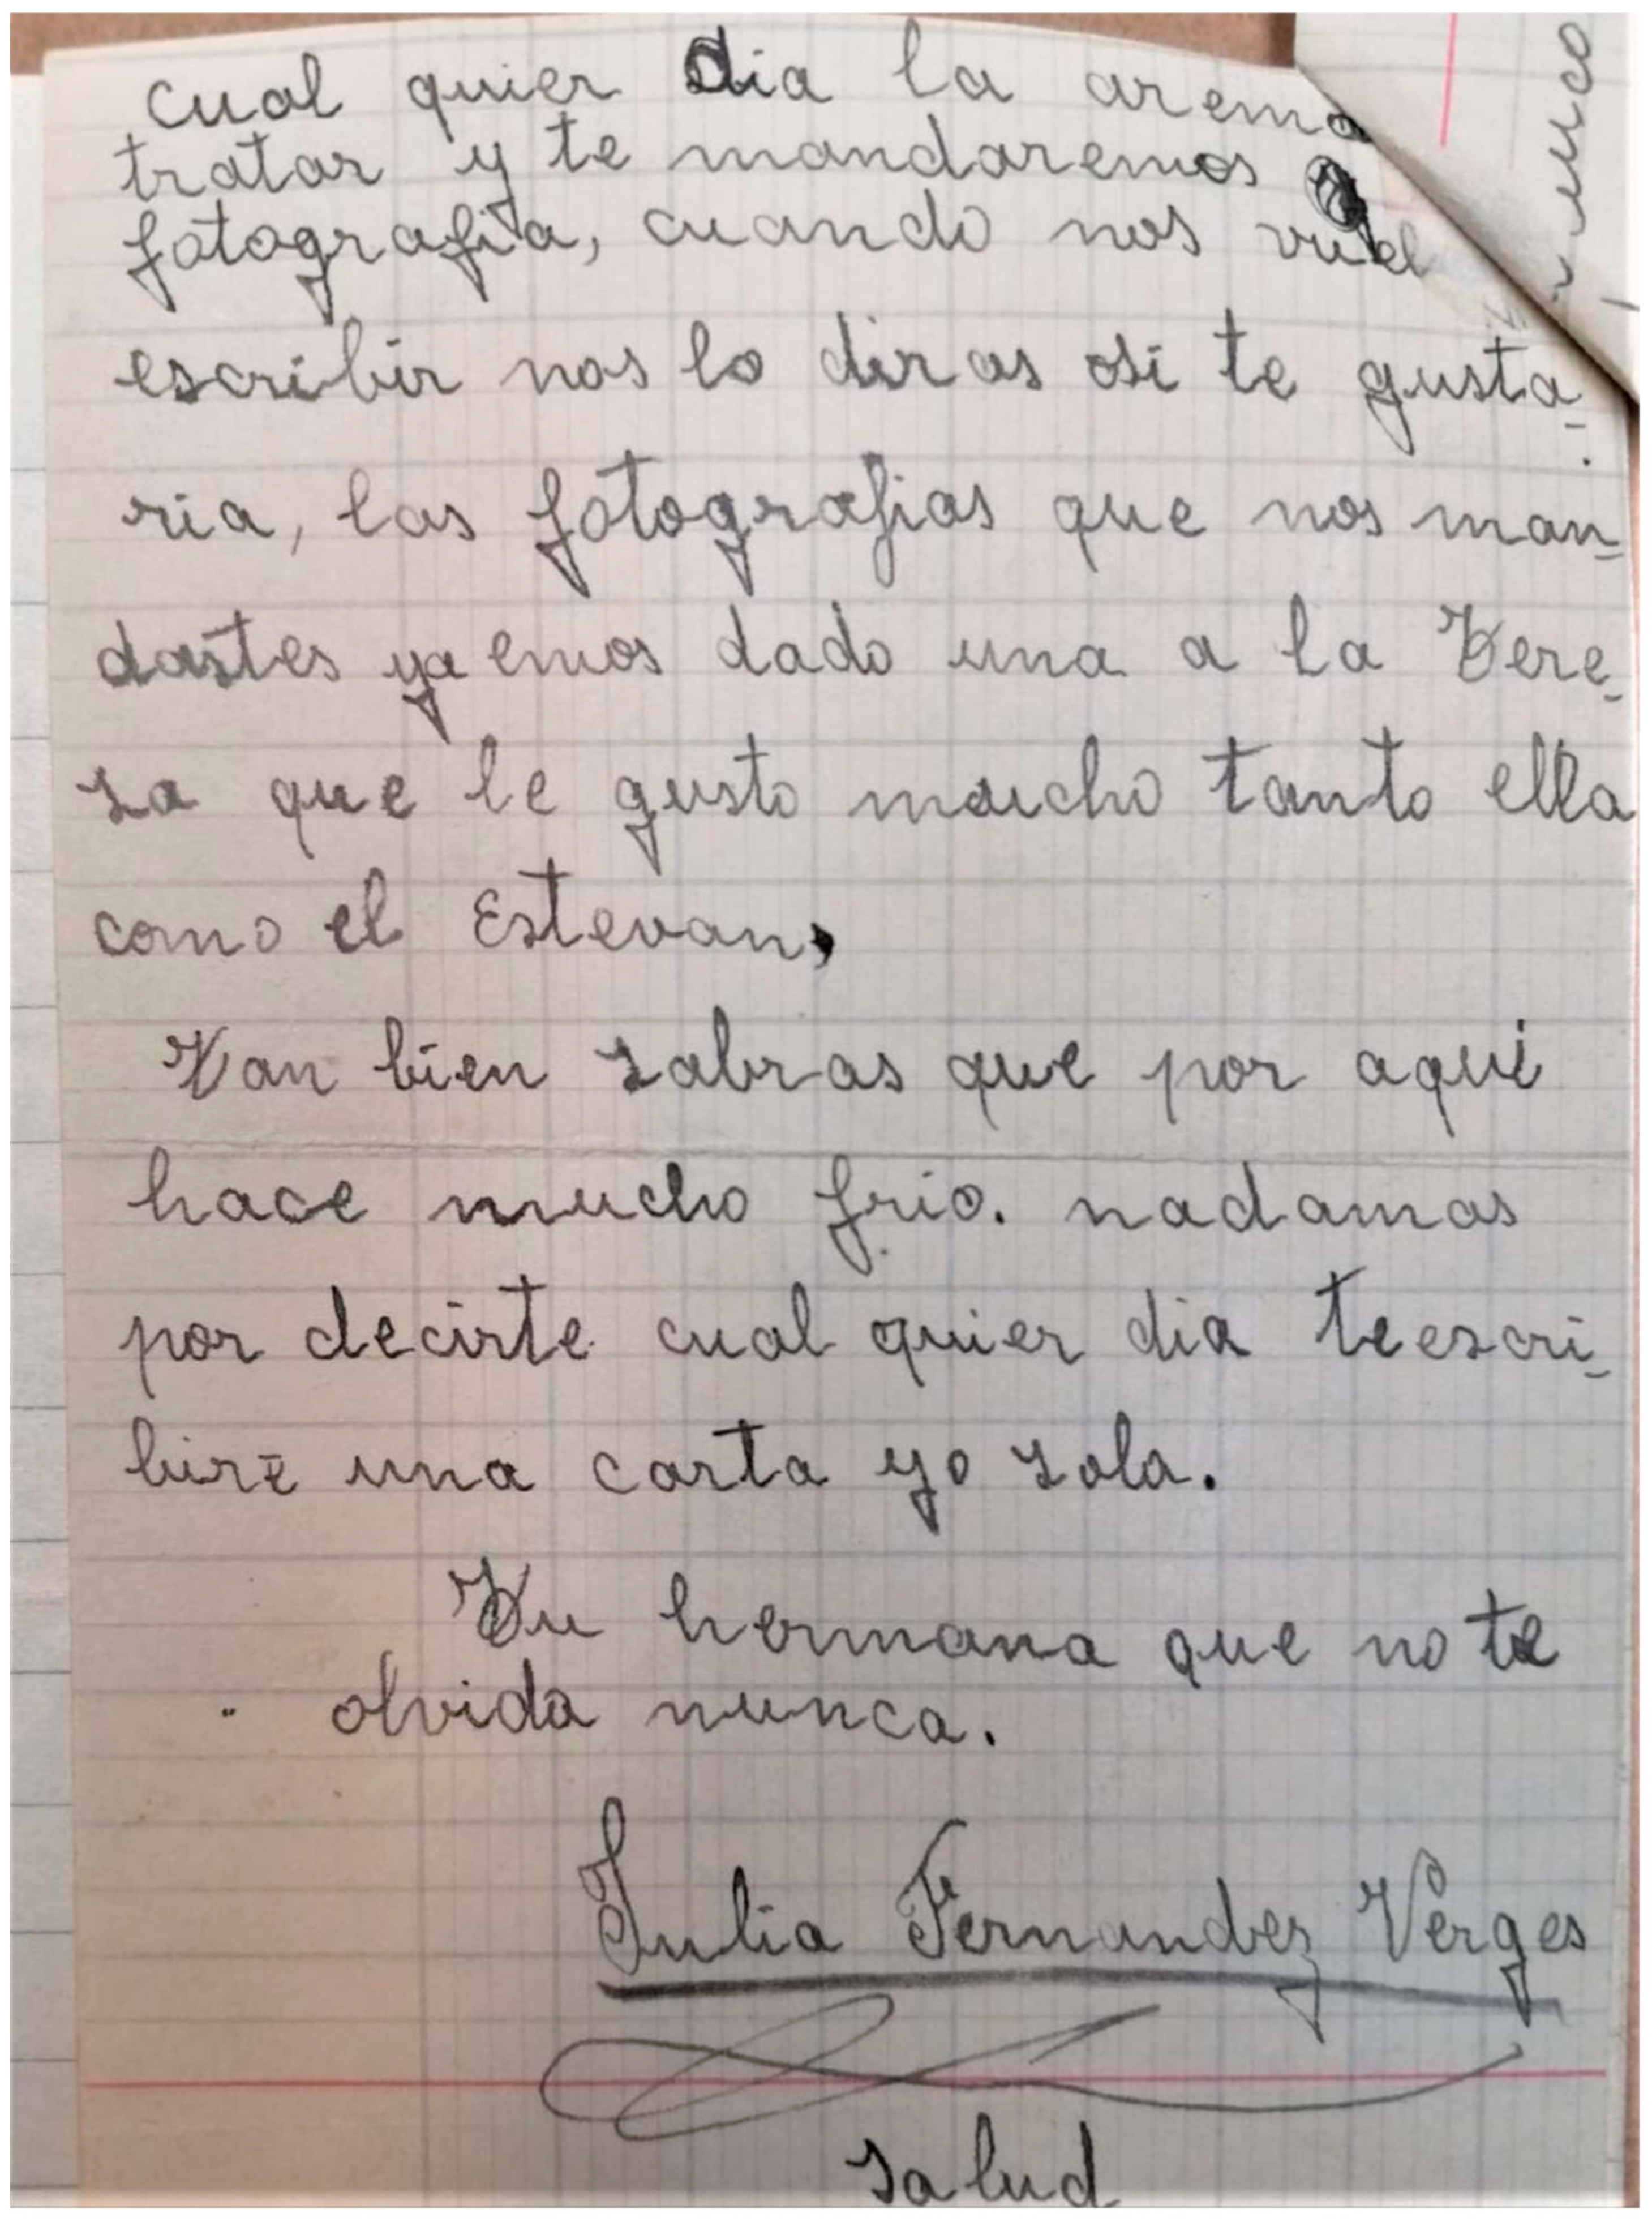 cual quier dia la arema
tratar y te mandaremos
fotografia, cuando nos vuel
escribir nos lo diras osi te gusta-
ria, las fotografias que nos man-
dastes ya emos dado una a la Tere-
sa que le gusto mucho tanto ella
como el Estevan,
Tan bien sabras que por aqui
hace mucho frio. nadamas
por decirte cual quier dia te escri-
biré una carta yo sola.
Tu hermana que no te
olvida nunca.
Julia Fernandez Verges
salud